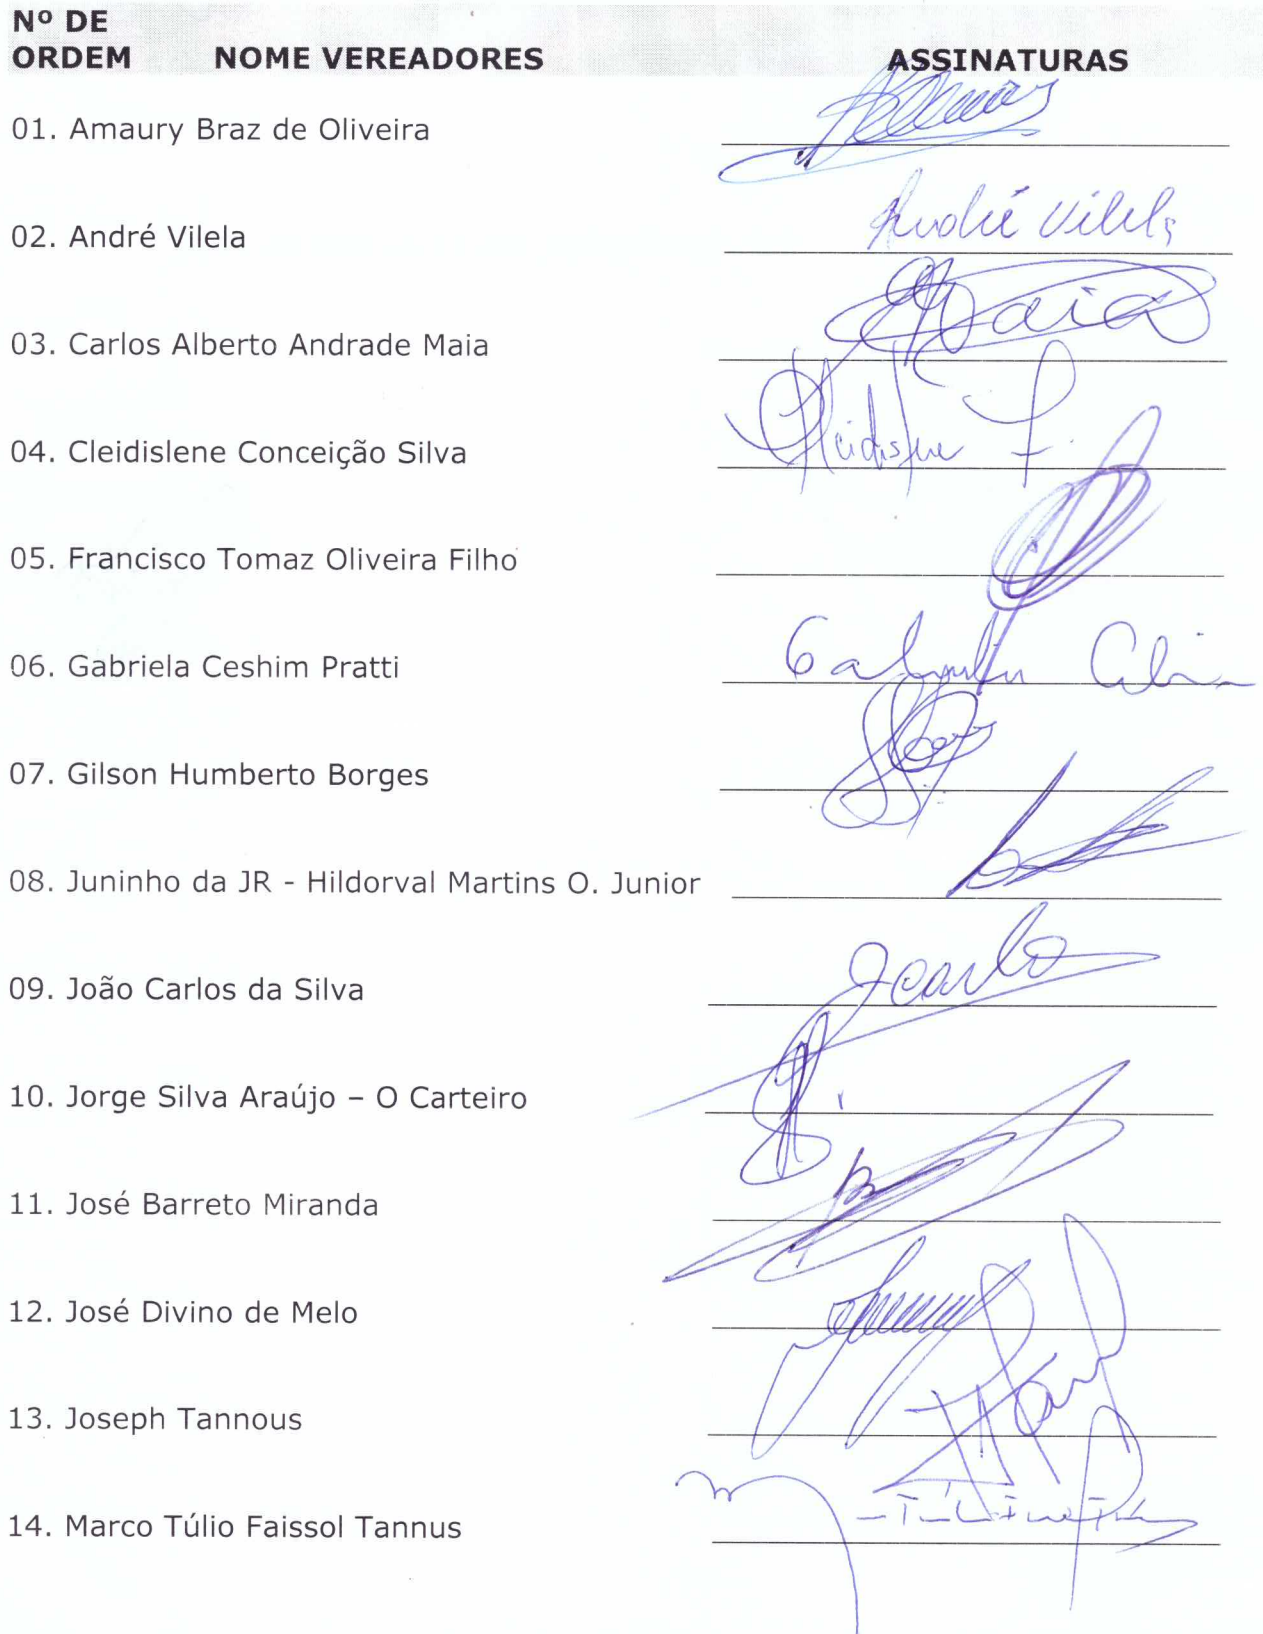 Nº DE
ORDEM NOME VEREADORES ASSINATURAS
01. Amaury Braz de Oliveira
02. André Vilela André Vilela
03. Carlos Alberto Andrade Maia Maia
04. Cleidislene Conceição Silva Cleidislene
05. Francisco Tomaz Oliveira Filho
06. Gabriela Ceshim Pratti Gabriela
07. Gilson Humberto Borges
08. Juninho da JR - Hildorval Martins O. Junior
09. João Carlos da Silva Jcarlo
10. Jorge Silva Araújo – O Carteiro
11. José Barreto Miranda
12. José Divino de Melo
13. Joseph Tannous
14. Marco Túlio Faissol Tannus